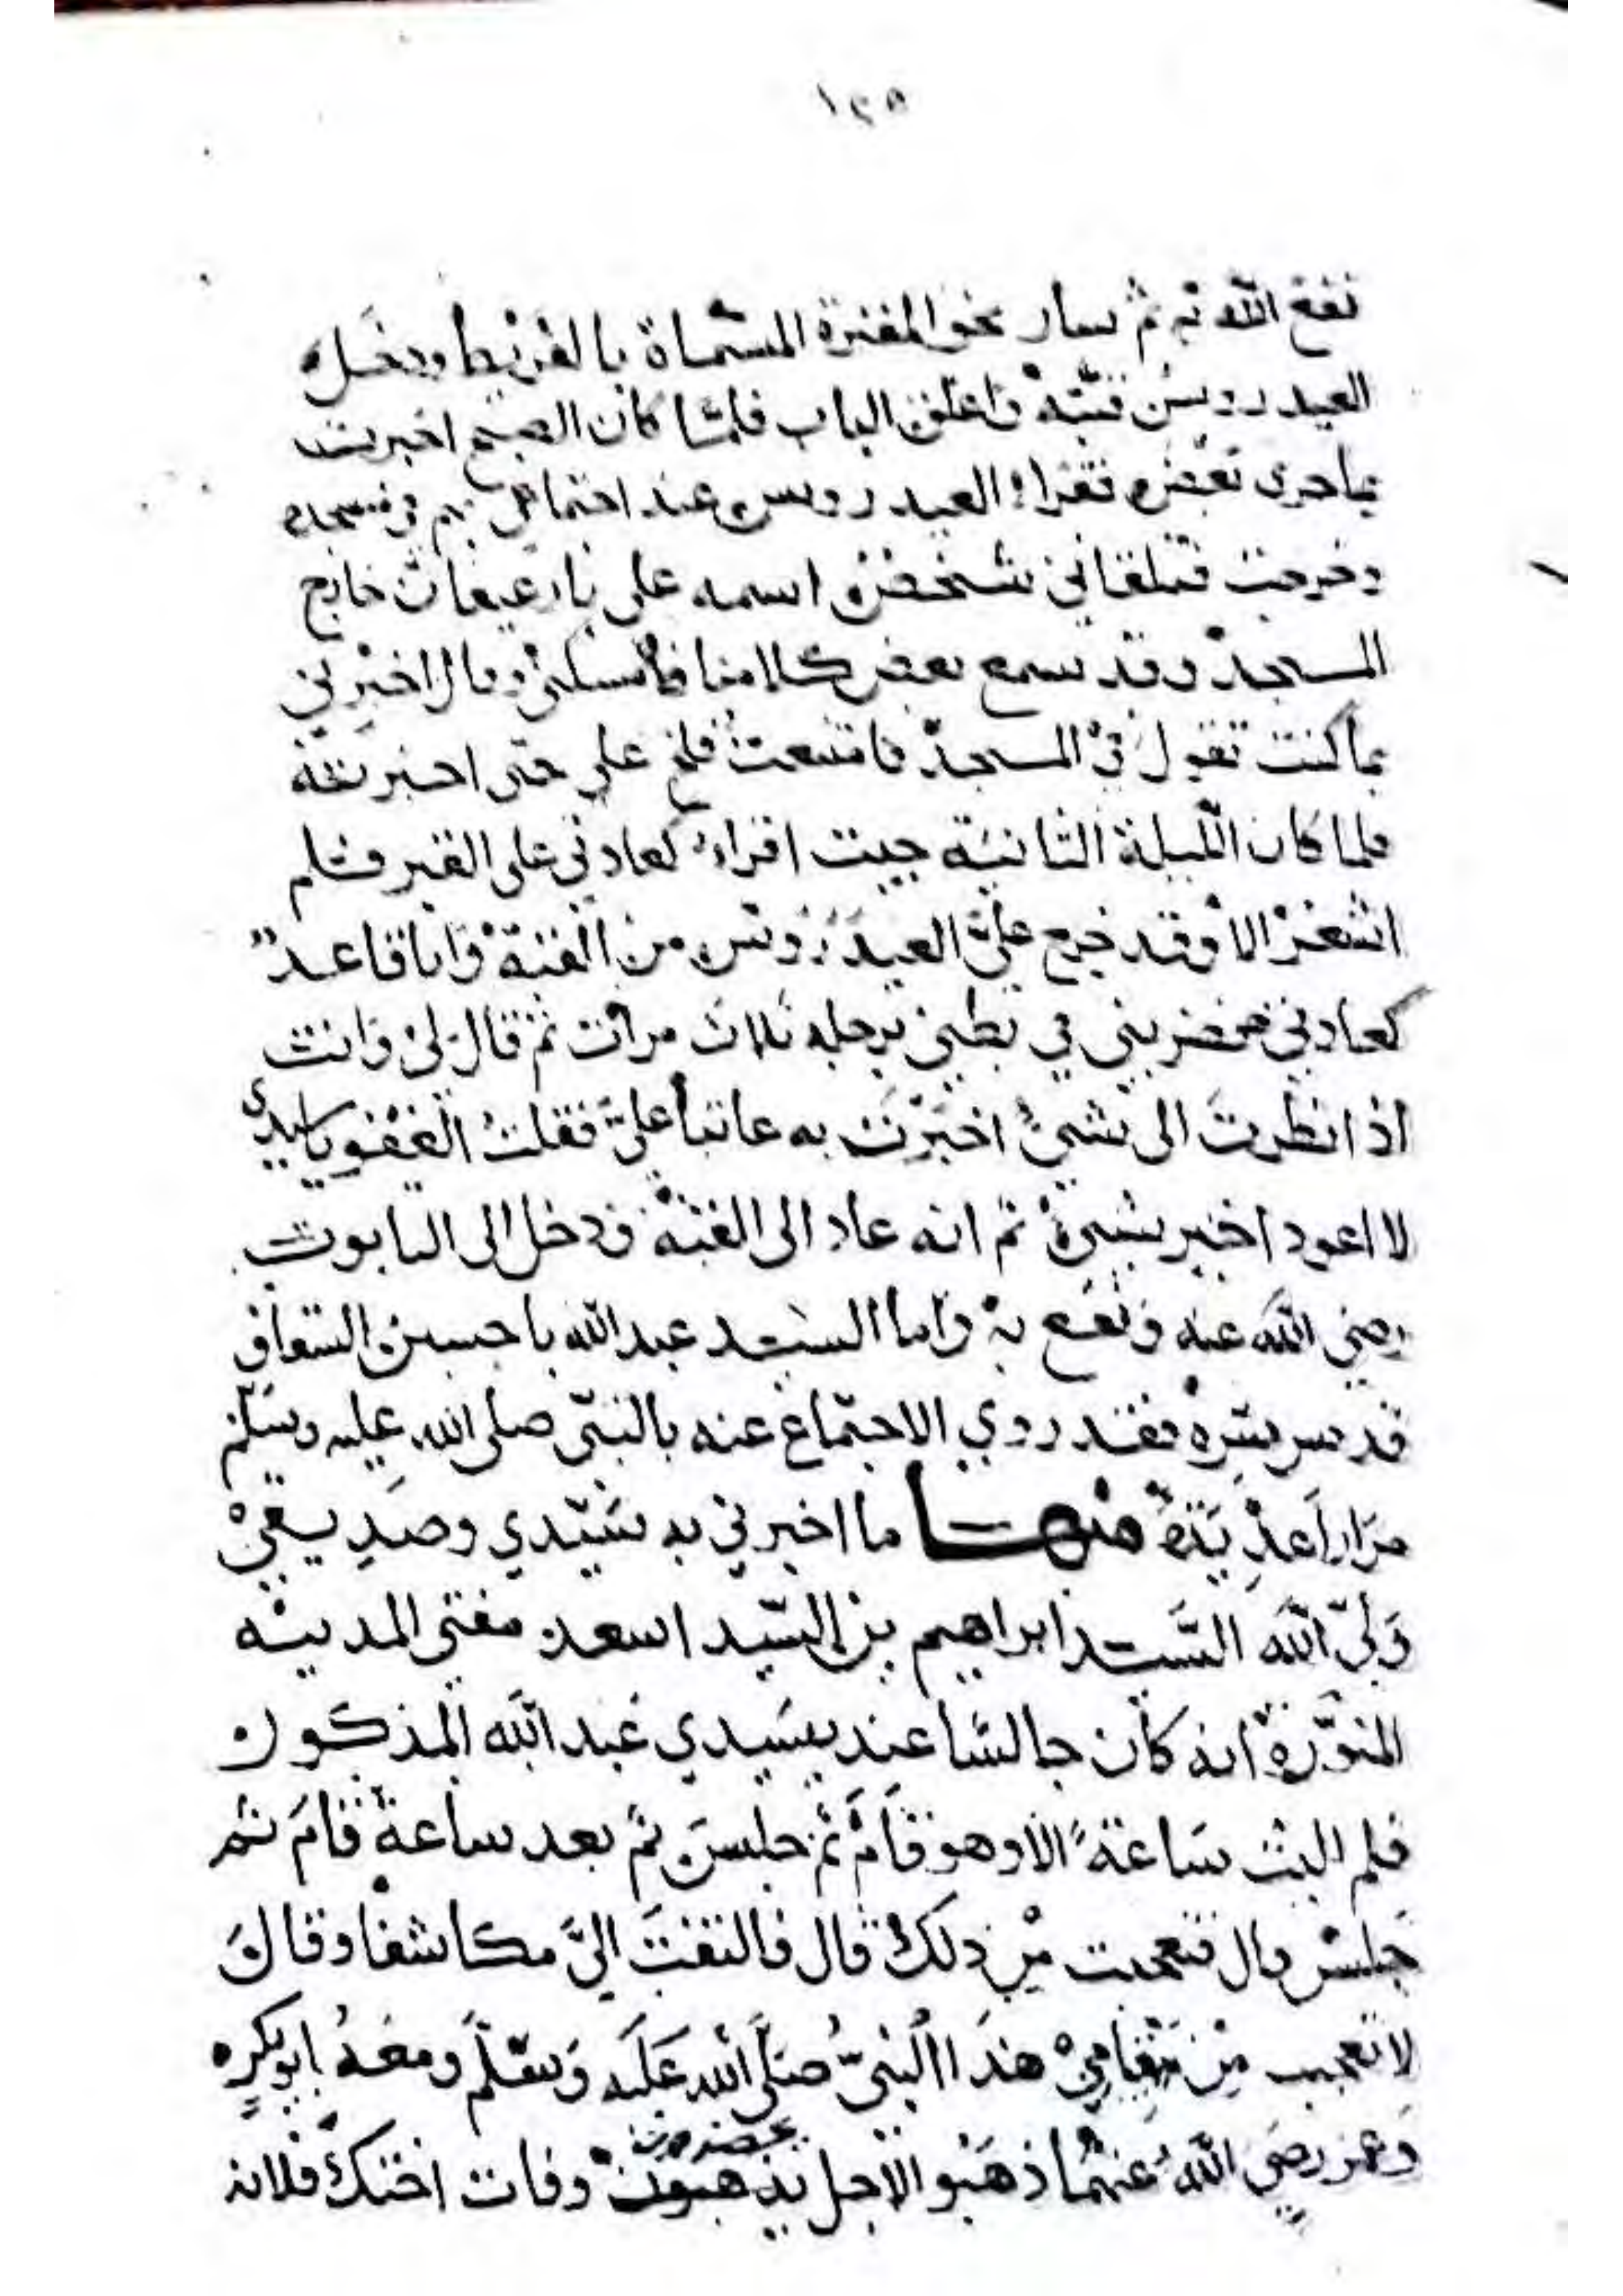 ١٢٥
نفع الله به ثم سار نحو المقبرة المسماة بالفريط ودخل
العيدروس قبته واغلق الباب فلما كان الصبح اخبرت
بما جرى بعض فقراء العيدروس عند اجتماعي بهم في مسجده
وخرجت فتلقاني شخص اسمه علي بارعيفان خارج
المسجد وقد سمع بعض كلامنا فأمسكني وقال اخبرني
بما كنت تقول في المسجد فامتنعت فلح علي حتى اخبرته
فلما كان الليلة الثانية جيت اقراء كعادتي على القبر فلم
اشعر الا وقد خرج عليَّ العيدروس من القبة وانا قاعد
كعادتي فضربني في بطني برجله ثلاث مرات ثم قال لي وانت
اذا نظرت الى شيء اخبرت به عاتباً عليَّ فقلت العفو ياسيدي
لا اعود اخبر بشيء ثم انه عاد الى القبة ودخل الى التابوت
رضي الله عنه ونفع به واما السيد عبدالله باحسين السقاف
قدس سره فقد روي الاجتماع عنه بالنبي صلى الله عليه وسلم
مراراً عديدة منها ما اخبرني به سيدي وصديقي
ولي الله السيد ابراهيم بن السيد اسعد مفتي المدينه
المنورة انه كان جالسا عند سيدي عبد الله المذكور
فلم البث ساعةً الا وهو قام ثم جلس ثم بعد ساعة قام ثم
جلس قال فتعجبت من ذلك قال فالتفت اليَّ مكاشفا وقال
لا تعجب من قيامي هذا النبي صلى الله عليه وسلم ومعه ابوبكر
وعمر رضي الله عنهما ذهبو الاجل بحضرون وفات اختك فلانه